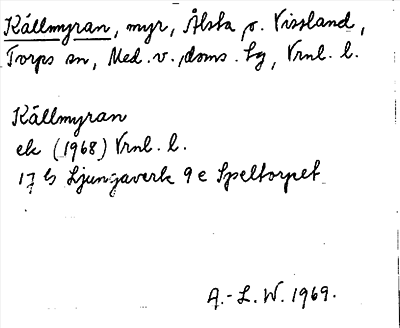 Källmyran, myr, Ålsta o. Vissland,
Torps sn, Med. v. doms. lg, Vrnl. l.
Källmyran
ek (1968) Vrnl. l.
17 G Ljungaverk 9 e Speltorpet
A.-L. W. 1969.